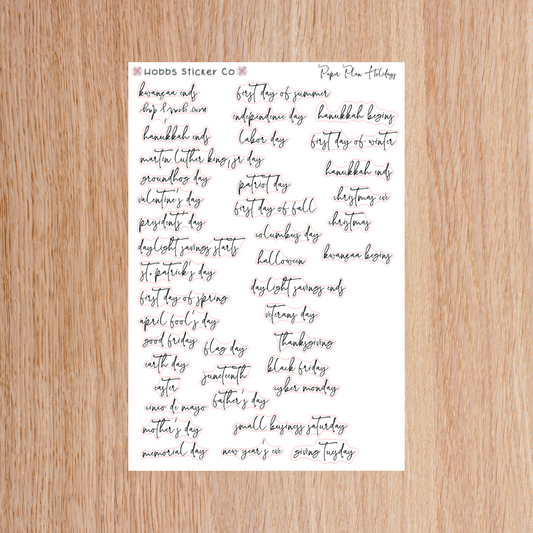 Hobbs Sticker Co
Paper Plan Holidays
kwanzaa ends
new year's day
hanukkah ends
martin luther king, jr day
groundhog day
valentine's day
presidents' day
daylight savings starts
st. patrick's day
first day of spring
april fool's day
good friday
earth day
easter
cinco de mayo
mother's day
memorial day
flag day
juneteenth
father's day
first day of summer
independence day
labor day
patriot day
first day of fall
columbus day
halloween
daylight savings ends
veterans day
thanksgiving
black friday
cyber monday
small business saturday
giving tuesday
hanukkah begins
first day of winter
hanukkah ends
christmas eve
christmas
kwanzaa begins
new year's eve